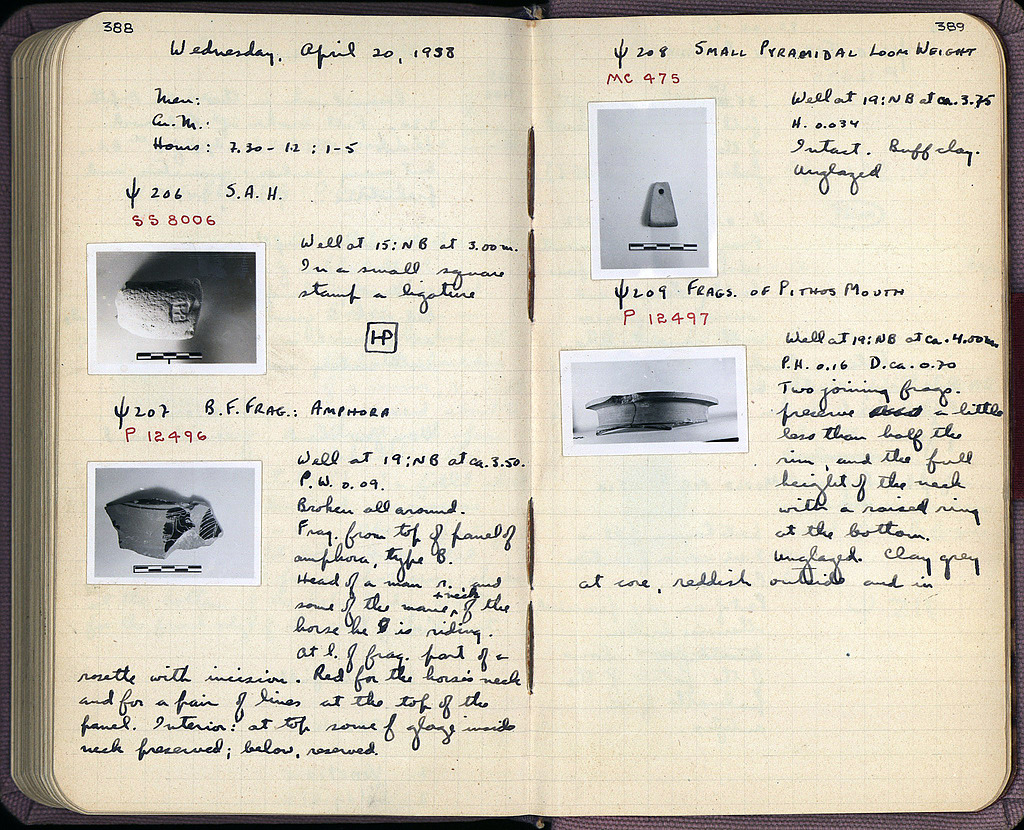 388
Wednesday, April 20, 1938
Men:
Au. M.:
Hours: 7.30 - 12 : 1 - 5
ψ 206 S.A.H.
SS 8006
Well at 15:NB at 3.00 m.
In a small square
stamp a ligature
HP
ψ 207 B.F. FRAG.: AMPHORA
P 12496
Well at 19:NB at ca. 3.50.
P.W. 0.09.
Broken all around.
Frag. from top of panel of
amphora, type B.
Head of a man r. and
some of the mane + neck of the
horse he is riding.
At l. of frag. part of a
rosette with incision. Red for the horse's neck
and for a pair of lines at the top of the
panel. Interior: at top some of glaze inside
neck preserved; below, reserved.
389
ψ 208 SMALL PYRAMIDAL LOOM WEIGHT
MC 475
Well at 19:NB at ca. 3.75
H. 0.034
Intact. Buff clay.
Unglazed
ψ 209 FRAGS. OF PITHOS MOUTH
P 12497
Well at 19:NB at ca. 4.00 m
P.H. 0.16 D. ca. 0.70
Two joining frags.
preserve a little
less than half the
rim, and the full
height of the neck
with a raised ring
at the bottom.
Unglazed. Clay grey
at core, reddish outside and in